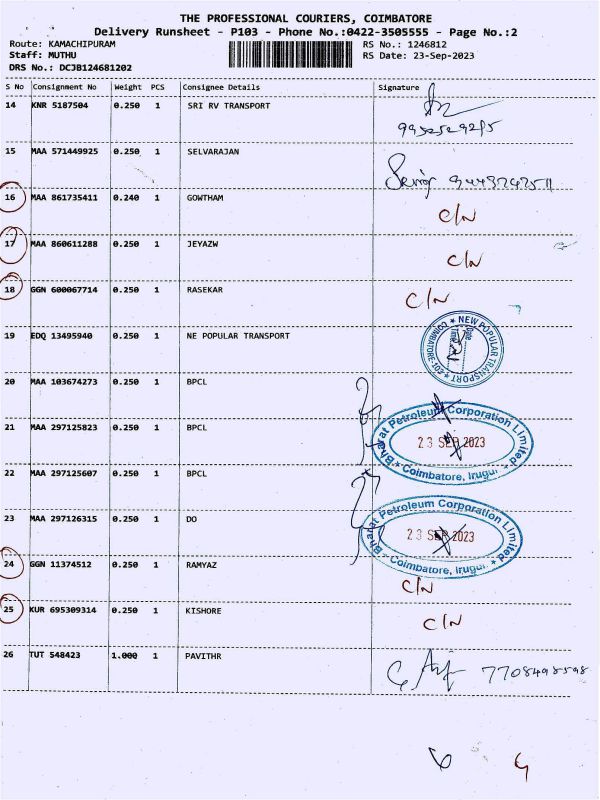 THE PROFESSIONAL COURIERS, COIMBATORE
Delivery Runsheet - P103 - Phone No.:0422-3505555 - Page No.:2
Route: KAMACHIPURAM RS No.: 1246812
Staff: MUTHU RS Date: 23-Sep-2023
DRS No.: DCJB124681202
S No Consignment No Weight PCS Consignee Details Signature
14 KNR 5187504 0.250 1 SRI RV TRANSPORT
15 MAA 571449925 0.250 1 SELVARAJAN
16 MAA 861735411 0.240 1 GOWTHAM C/N
17 MAA 860611288 0.250 1 JEYAZW C/N
18 GGN 600067714 0.250 1 RASEKAR C/N
19 EDQ 13495940 0.250 1 NE POPULAR TRANSPORT
NEW POPULAR TRANSPORT
Date
Time
20 MAA 103674273 0.250 1 BPCL
21 MAA 297125823 0.250 1 BPCL
Bharat Petroleum Corporation Limited
23 SEP 2023
Coimbatore, Irugur
22 MAA 297125607 0.250 1 BPCL
23 MAA 297126315 0.250 1 DO
Bharat Petroleum Corporation Limited
23 SEP 2023
Coimbatore, Irugur
24 GGN 11374512 0.250 1 RAMYAZ C/N
25 KUR 695309314 0.250 1 KISHORE C/N
26 TUT 548423 1.000 1 PAVITHR 7708498598